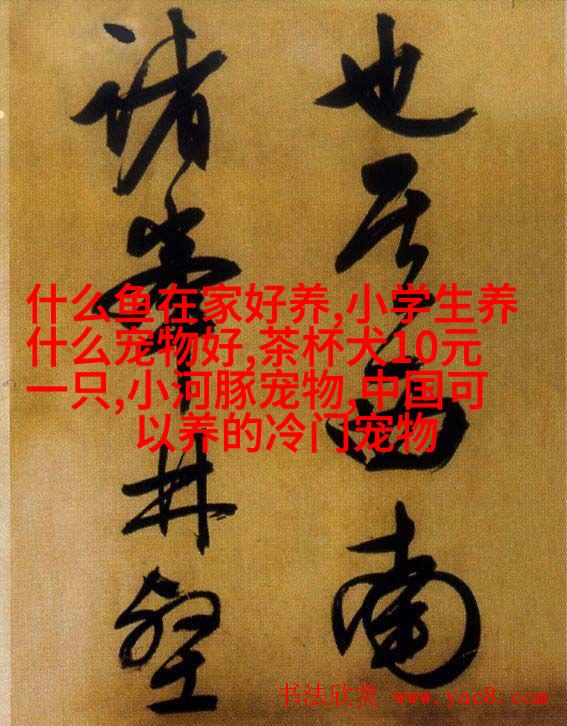 也其西南
諸峯林壑
什么鱼在家好养,小学生养
什么宠物好,茶杯犬10元
一只,小河豚宠物,中国可
以养的冷门宠物
书法欣赏 www.yac8.com